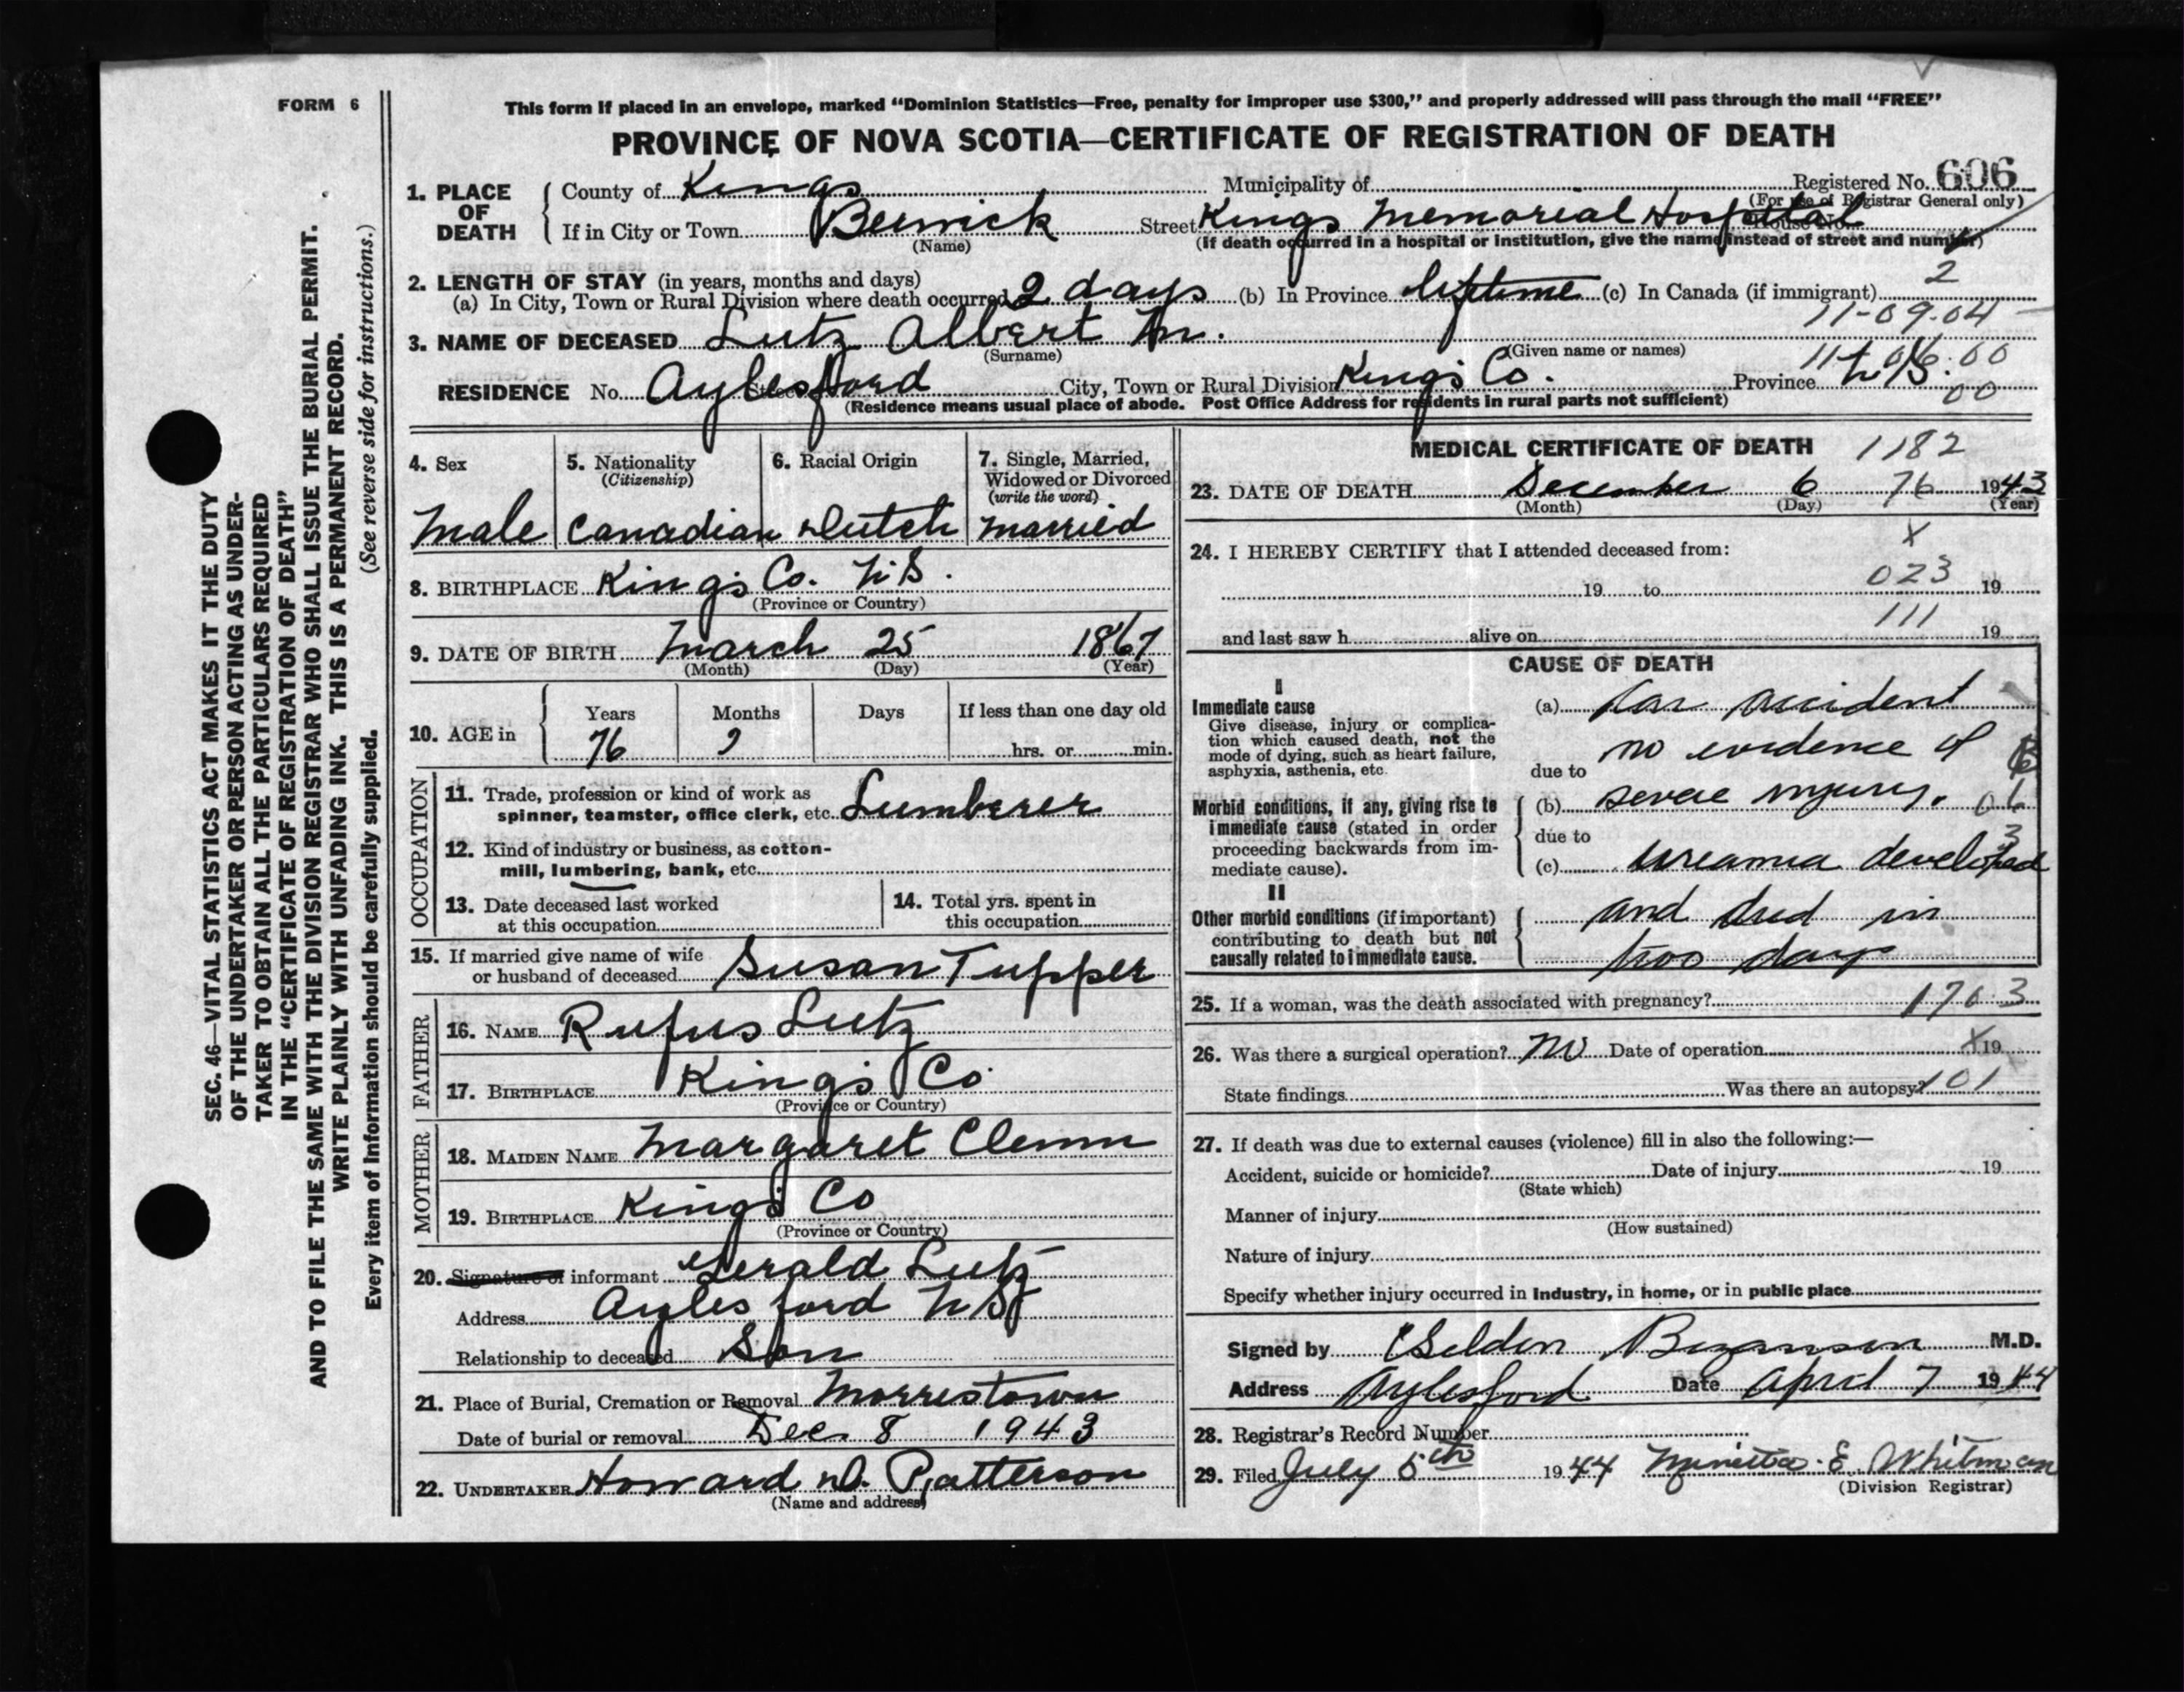 FORM 6
This form if placed in an envelope, marked "Dominion Statistics—Free, penalty for improper use $300," and properly addressed will pass through the mail "FREE"
PROVINCE OF NOVA SCOTIA—CERTIFICATE OF REGISTRATION OF DEATH
SEC. 46—VITAL STATISTICS ACT MAKES IT THE DUTY
OF THE UNDERTAKER OR PERSON ACTING AS UNDER-
TAKER TO OBTAIN ALL THE PARTICULARS REQUIRED
IN THE "CERTIFICATE OF REGISTRATION OF DEATH"
AND TO FILE THE SAME WITH THE DIVISION REGISTRAR WHO SHALL ISSUE THE BURIAL PERMIT.
WRITE PLAINLY WITH UNFADING INK. THIS IS A PERMANENT RECORD.
Every item of information should be carefully supplied. (See reverse side for instructions.)
1. PLACE OF DEATH County of Kings Municipality of Registered No. 606
(For use of Registrar General only)
If in City or Town Berwick Street Kings Memorial Hospital House No.
(Name) (If death occurred in a hospital or institution, give the name instead of street and number)
2. LENGTH OF STAY (in years, months and days) 2
(a) In City, Town or Rural Division where death occurred 2 days (b) In Province lifetime (c) In Canada (if immigrant)
11-09.04
3. NAME OF DECEASED Lutz Albert M.
(Surname) (Given name or names)
RESIDENCE No. Aylesford Street City, Town or Rural Division Kings Co. Province N.S. 00
(Residence means usual place of abode. Post Office Address for residents in rural parts not sufficient)
4. Sex 5. Nationality 6. Racial Origin 7. Single, Married,
(Citizenship) Widowed or Divorced
(write the word)
Male Canadian Dutch Married
8. BIRTHPLACE King's Co. N.S.
(Province or Country)
9. DATE OF BIRTH March 25 1867
(Month) (Day) (Year)
10. AGE in Years Months Days If less than one day old
76 9 hrs. or min.
OCCUPATION
11. Trade, profession or kind of work as
spinner, teamster, office clerk, etc. Lumberer
12. Kind of industry or business, as cotton-
mill, lumbering, bank, etc.
13. Date deceased last worked
at this occupation
14. Total yrs. spent in
this occupation
15. If married give name of wife
or husband of deceased Susan Tupper
FATHER
16. NAME Rufus Lutz
17. BIRTHPLACE King's Co.
(Province or Country)
MOTHER
18. MAIDEN NAME Margaret Clemm
19. BIRTHPLACE Kings Co
(Province or Country)
20. Signature of informant Gerald Lutz
Address Aylesford N.S.
Relationship to deceased Son
21. Place of Burial, Cremation or Removal Morristown
Date of burial or removal Dec. 8 1943
22. UNDERTAKER Howard D. Patterson
(Name and address)
MEDICAL CERTIFICATE OF DEATH 1182
23. DATE OF DEATH December 6 76 1943
(Month) (Day) (Year)
24. I HEREBY CERTIFY that I attended deceased from: X
19 to 023 19
111
and last saw h alive on 19
CAUSE OF DEATH
I
Immediate cause
Give disease, injury or complica-
tion which caused death, not the
mode of dying, such as heart failure,
asphyxia, asthenia, etc.
(a) Car accident
no evidence of
due to
Morbid conditions, if any, giving rise to
immediate cause (stated in order
proceeding backwards from im-
mediate cause).
(b) severe injury.
due to
(c) Ureamia developed
II
Other morbid conditions (if important)
contributing to death but not
causally related to immediate cause.
and died in
two days
25. If a woman, was the death associated with pregnancy? 1703
26. Was there a surgical operation? No Date of operation X 19
State findings Was there an autopsy? 101
27. If death was due to external causes (violence) fill in also the following:—
Accident, suicide or homicide? Date of injury 19
(State which)
Manner of injury
(How sustained)
Nature of injury
Specify whether injury occurred in industry, in home, or in public place
Signed by Selden M.D.
Address Aylesford Date April 7 1944
28. Registrar's Record Number
29. Filed July 5th 1944 E. Whitman
(Division Registrar)